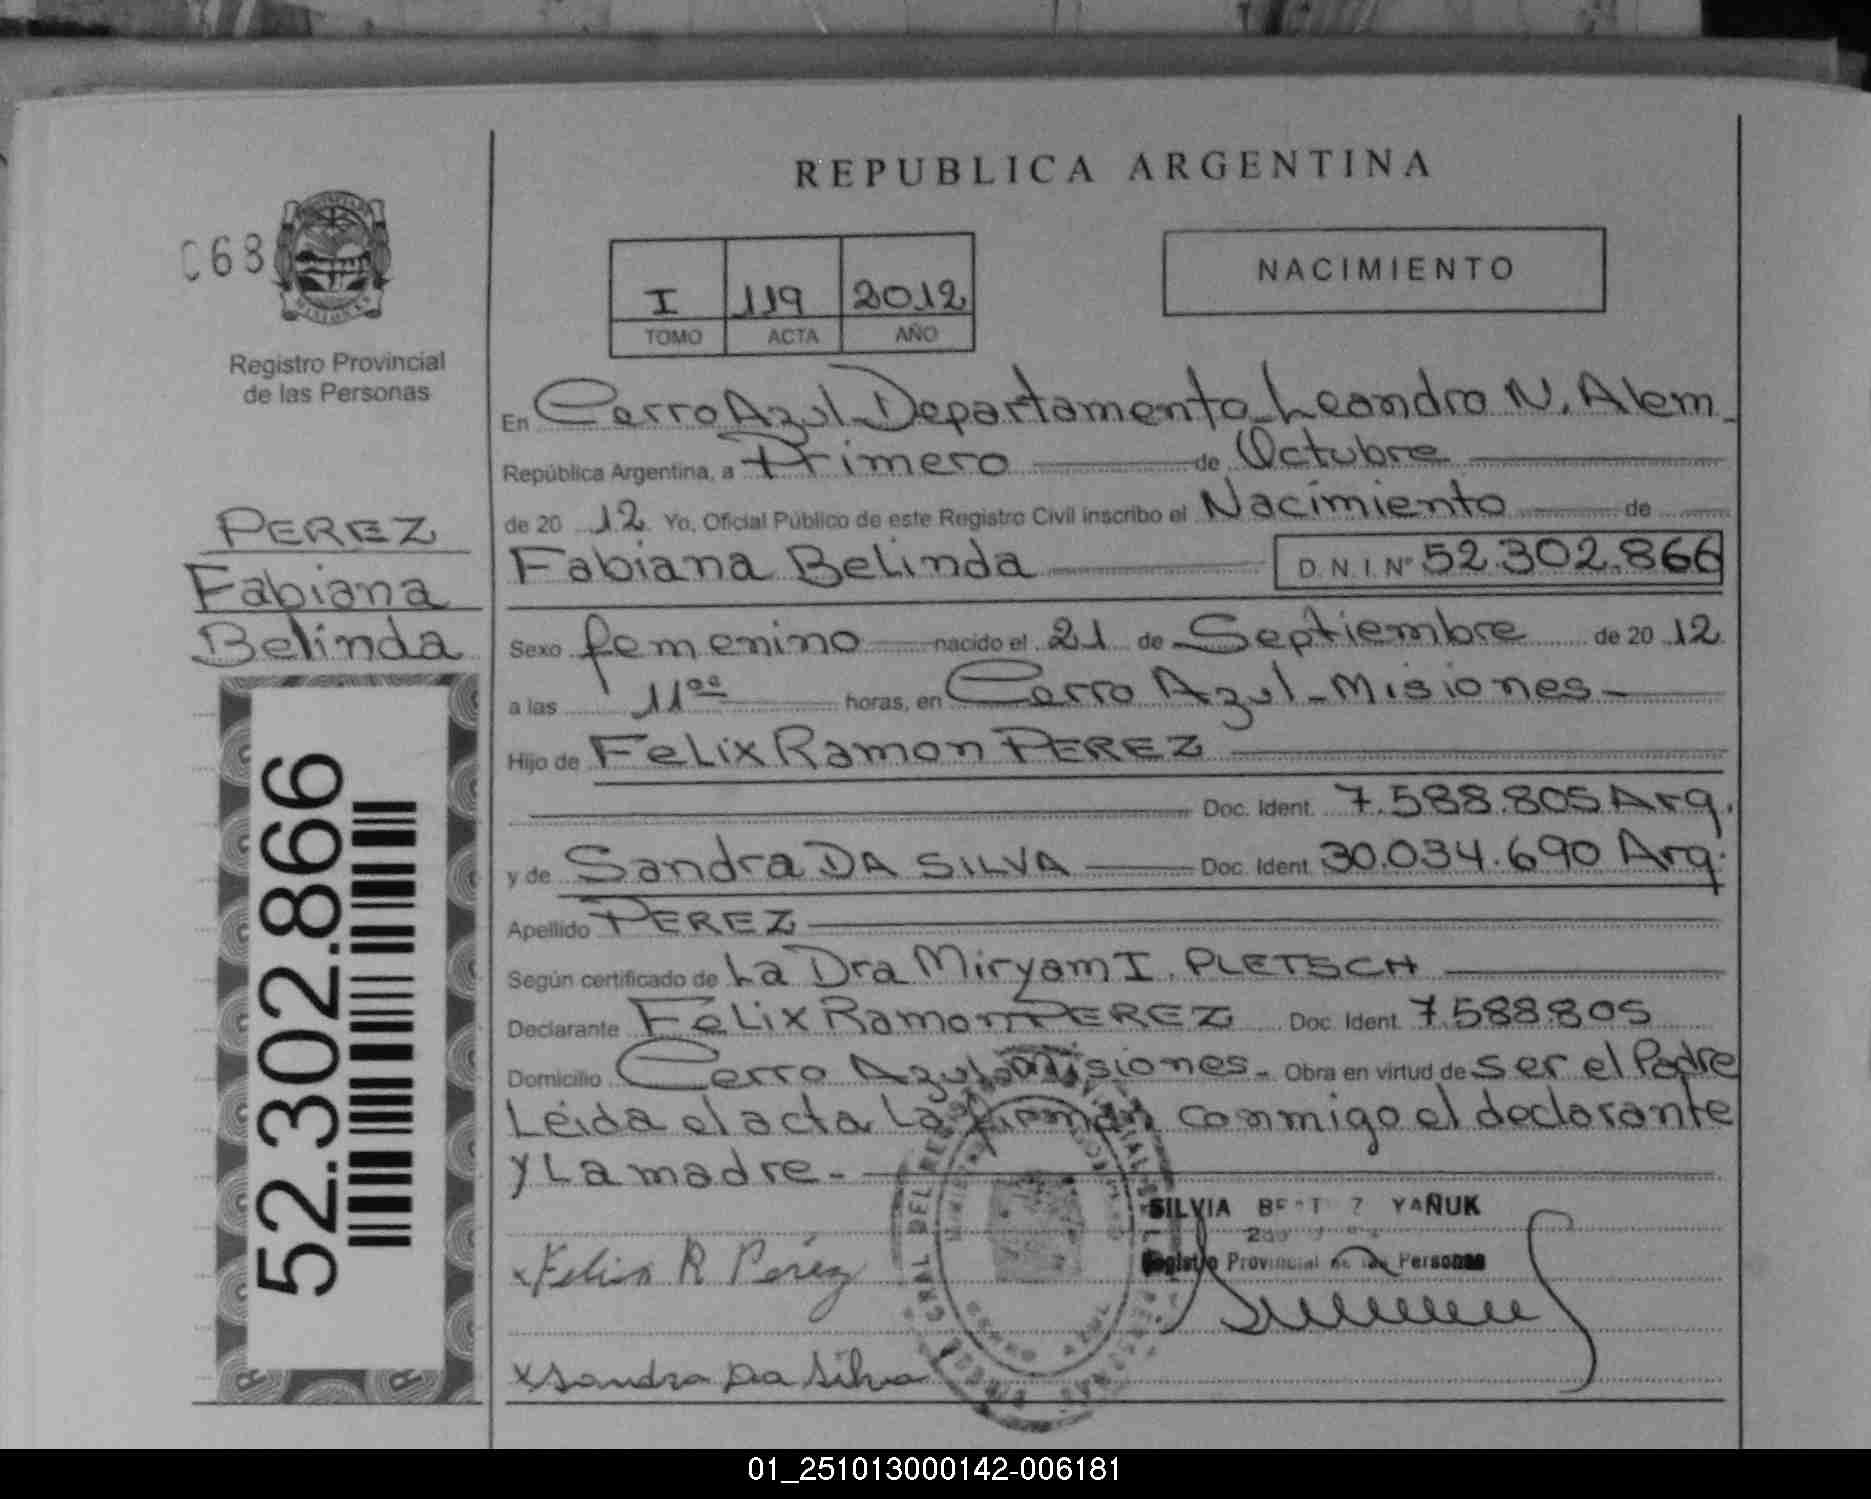 REPUBLICA ARGENTINA
C68
MISIONES
Registro Provincial
de las Personas
I 119 2012
TOMO ACTA AÑO
NACIMIENTO
PEREZ
Fabiana
Belinda
52.302.866
En Cerro Azul Departamento Leandro N. Alem
República Argentina, a Primero de Octubre
de 20 12 Yo, Oficial Público de este Registro Civil inscribo el Nacimiento de
Fabiana Belinda D. N. I. Nº 52.302.866
Sexo femenino nacido el 21 de Septiembre de 20 12
a las 11ºº horas, en Cerro Azul - Misiones -
Hijo de Felix Ramon PEREZ
Doc. Ident. 7.588.805 Arg.
y de Sandra DA SILVA Doc. Ident. 30.034.690 Arg.
Apellido PEREZ
Según certificado de La Dra Miryam I. PLETSCH
Declarante Felix Ramon PEREZ Doc. Ident. 7.588.805
Domicilio Cerro Azul Misiones - Obra en virtud de ser el Padre
Leida el acta La firman conmigo el declarante
y La madre -
SILVIA YAÑUK
Registro Provincial de las Personas
x Felix R Pérez
x Sandra Da Silva
01_251013000142-006181